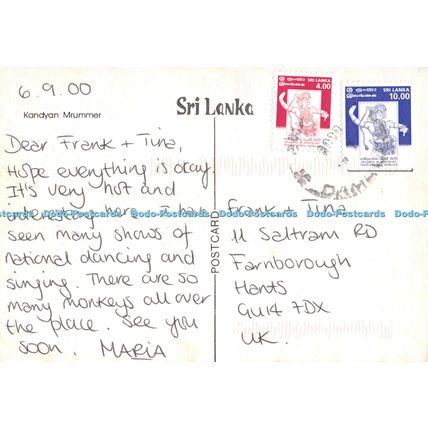 6.9.00
Kandyan Mrummer
Sri Lanka
SRI LANKA
4.00
SRI LANKA
10.00
Dear Frank + Tina,
Hope everything is okay.
It's very hot and
interesting here. I have
seen many shows of
national dancing and
singing. There are so
many monkeys all over
the place. See you
soon. MARIA
POSTCARD
Frank + Tina
11 Saltram RD
Farnborough
Hants
GU14 7DX
UK.
Dodo-Postcards Dodo-Postcards Dodo-Postcards Dodo-Postcards Dodo-Postcards